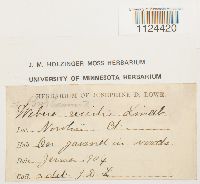 1124420
J. M. HOLZINGER MOSS HERBARIUM
UNIVERSITY OF MINNESOTA HERBARIUM
HERBARIUM OF JOSEPHINE D. LOWE.
Webera sessilis Lindb.
Loc. Noroton Ct.
Hab. On ground in woods.
Date
Coll. J. D. L.